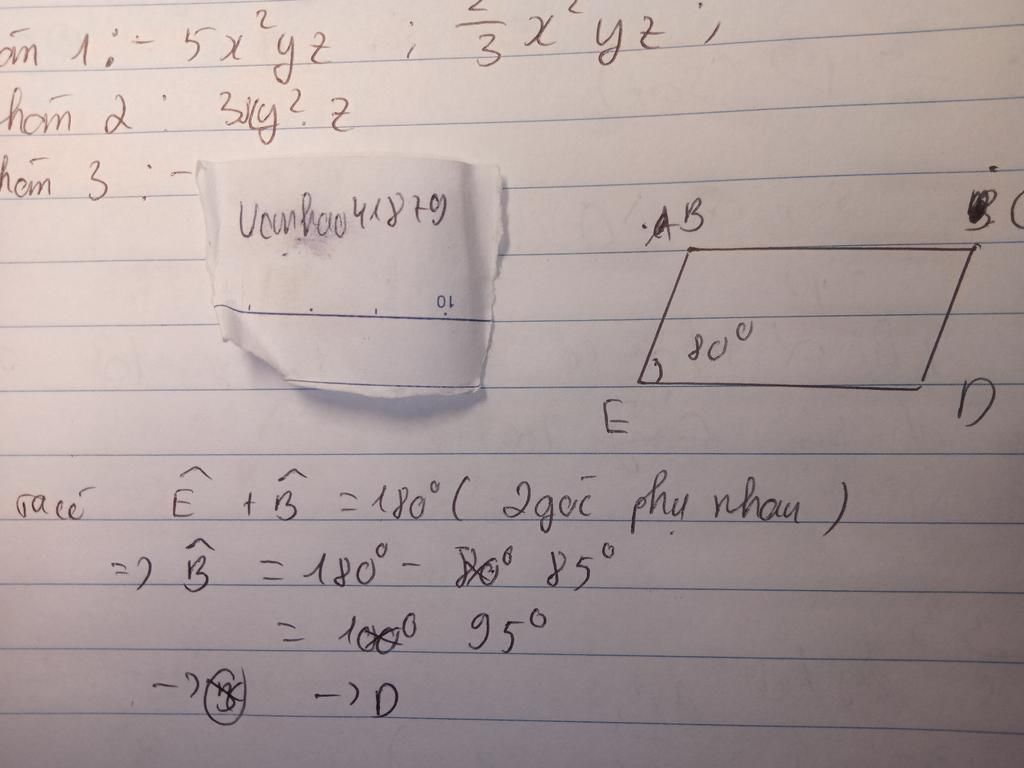 án 1: - 5x²yz ; 2/3 x²yz ;
hán 2 : 3xy². z
hán 3 : -
Vanhao41879
10
B C
80⁰
E D
ta có Ê + B̂ = 180⁰ ( 2 góc phụ nhau )
=> B̂ = 180⁰ - 85⁰
= 95⁰
-> -> D